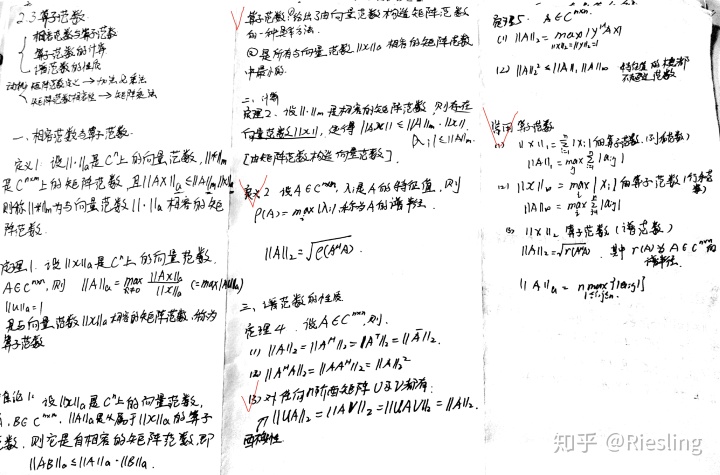 2.3 算子范数
相容范数与算子范数
算子范数的计算
谱范数的性质
矩阵范数定义 → 加法,数乘法
矩阵范数相容性 → 矩阵乘法
一、相容范数与算子范数.
定义1. 设 ||·||a 是 Cⁿ 上的向量范数, ||*||m
是 Cⁿˣⁿ 上的矩阵范数, 且 ||AX||a ≤ ||A||m ||X||a
则称 ||*||m 为与向量范数 ||·||a 相容的矩
阵范数.
定理1. 设 ||x||a 是 Cⁿ 上的向量范数.
A∈Cⁿˣⁿ, 则 ||A||a = max x≠0 ||Ax||a / ||x||a (= max ||Au||a)
||u||a = 1
是与向量范数 ||x||a 相容的矩阵范数, 称为
算子范数
推论1: 设 ||x||a 是 Cⁿ 上的向量范数,
A, B∈Cⁿˣⁿ, ||A||a 是从属于 ||x||a 的算子
范数, 则它是自相容的矩阵范数, 即
||AB||a ≤ ||A||a · ||B||a.
算子范数 ①给出了由向量范数构造矩阵范数
的一种简单方法.
②是所有与向量范数 ||x||a 相容的矩阵范数
中最小的.
二、计算
定理2. 设 ||·||m 是相容的矩阵范数, 则存在
向量范数 ||x||, 使得 ||Ax|| ≤ ||A||m · ||x||.
|λi| ≤ ||A||m.
[由矩阵范数构造向量范数].
定义2 设 A∈Cⁿˣⁿ, λi 是 A 的特征值, 则
ρ(A) = max i |λi|, 称为 A 的谱半径.
||A||2 = √ρ(AᴴA).
三、谱范数的性质
定理4. 设 A∈Cⁿˣⁿ, 则.
(1) ||A||2 = ||Aᴴ||2 = ||Aᵀ||2 = ||Ā||2.
(2) ||AᴴA||2 = ||AAᴴ||2 = ||A||2²
(3) 对任何 n 阶酉矩阵 U 及 V 都有:
||UA||2 = ||AV||2 = ||UAV||2 = ||A||2.
酉
定理5. A∈Cⁿˣⁿ.
(1) ||A||2 = max |yᴴAx|
||x||2=||y||2=1
(2) ||A||2² ≤ ||A||1 ||A||∞ 特征值的模都
不超过范数
常用算子范数
(1) ||x||1 = Σ i=1 n |xi| 的算子范数 (列和范数)
||A||1 = max j Σ i=1 n |aij|
(2) ||x||∞ = max i |xi| 的算子范数 (行和范
数)
||A||∞ = max i Σ j=1 n |aij|
(3) ||x||2 算子范数 (谱范数)
||A||2 = √r(AᴴA). 其中 r(A) 为 A∈Cⁿˣⁿ 的
谱半径.
||A||a = n max 1≤i,j≤n {|aij|}
知乎 @Riesling